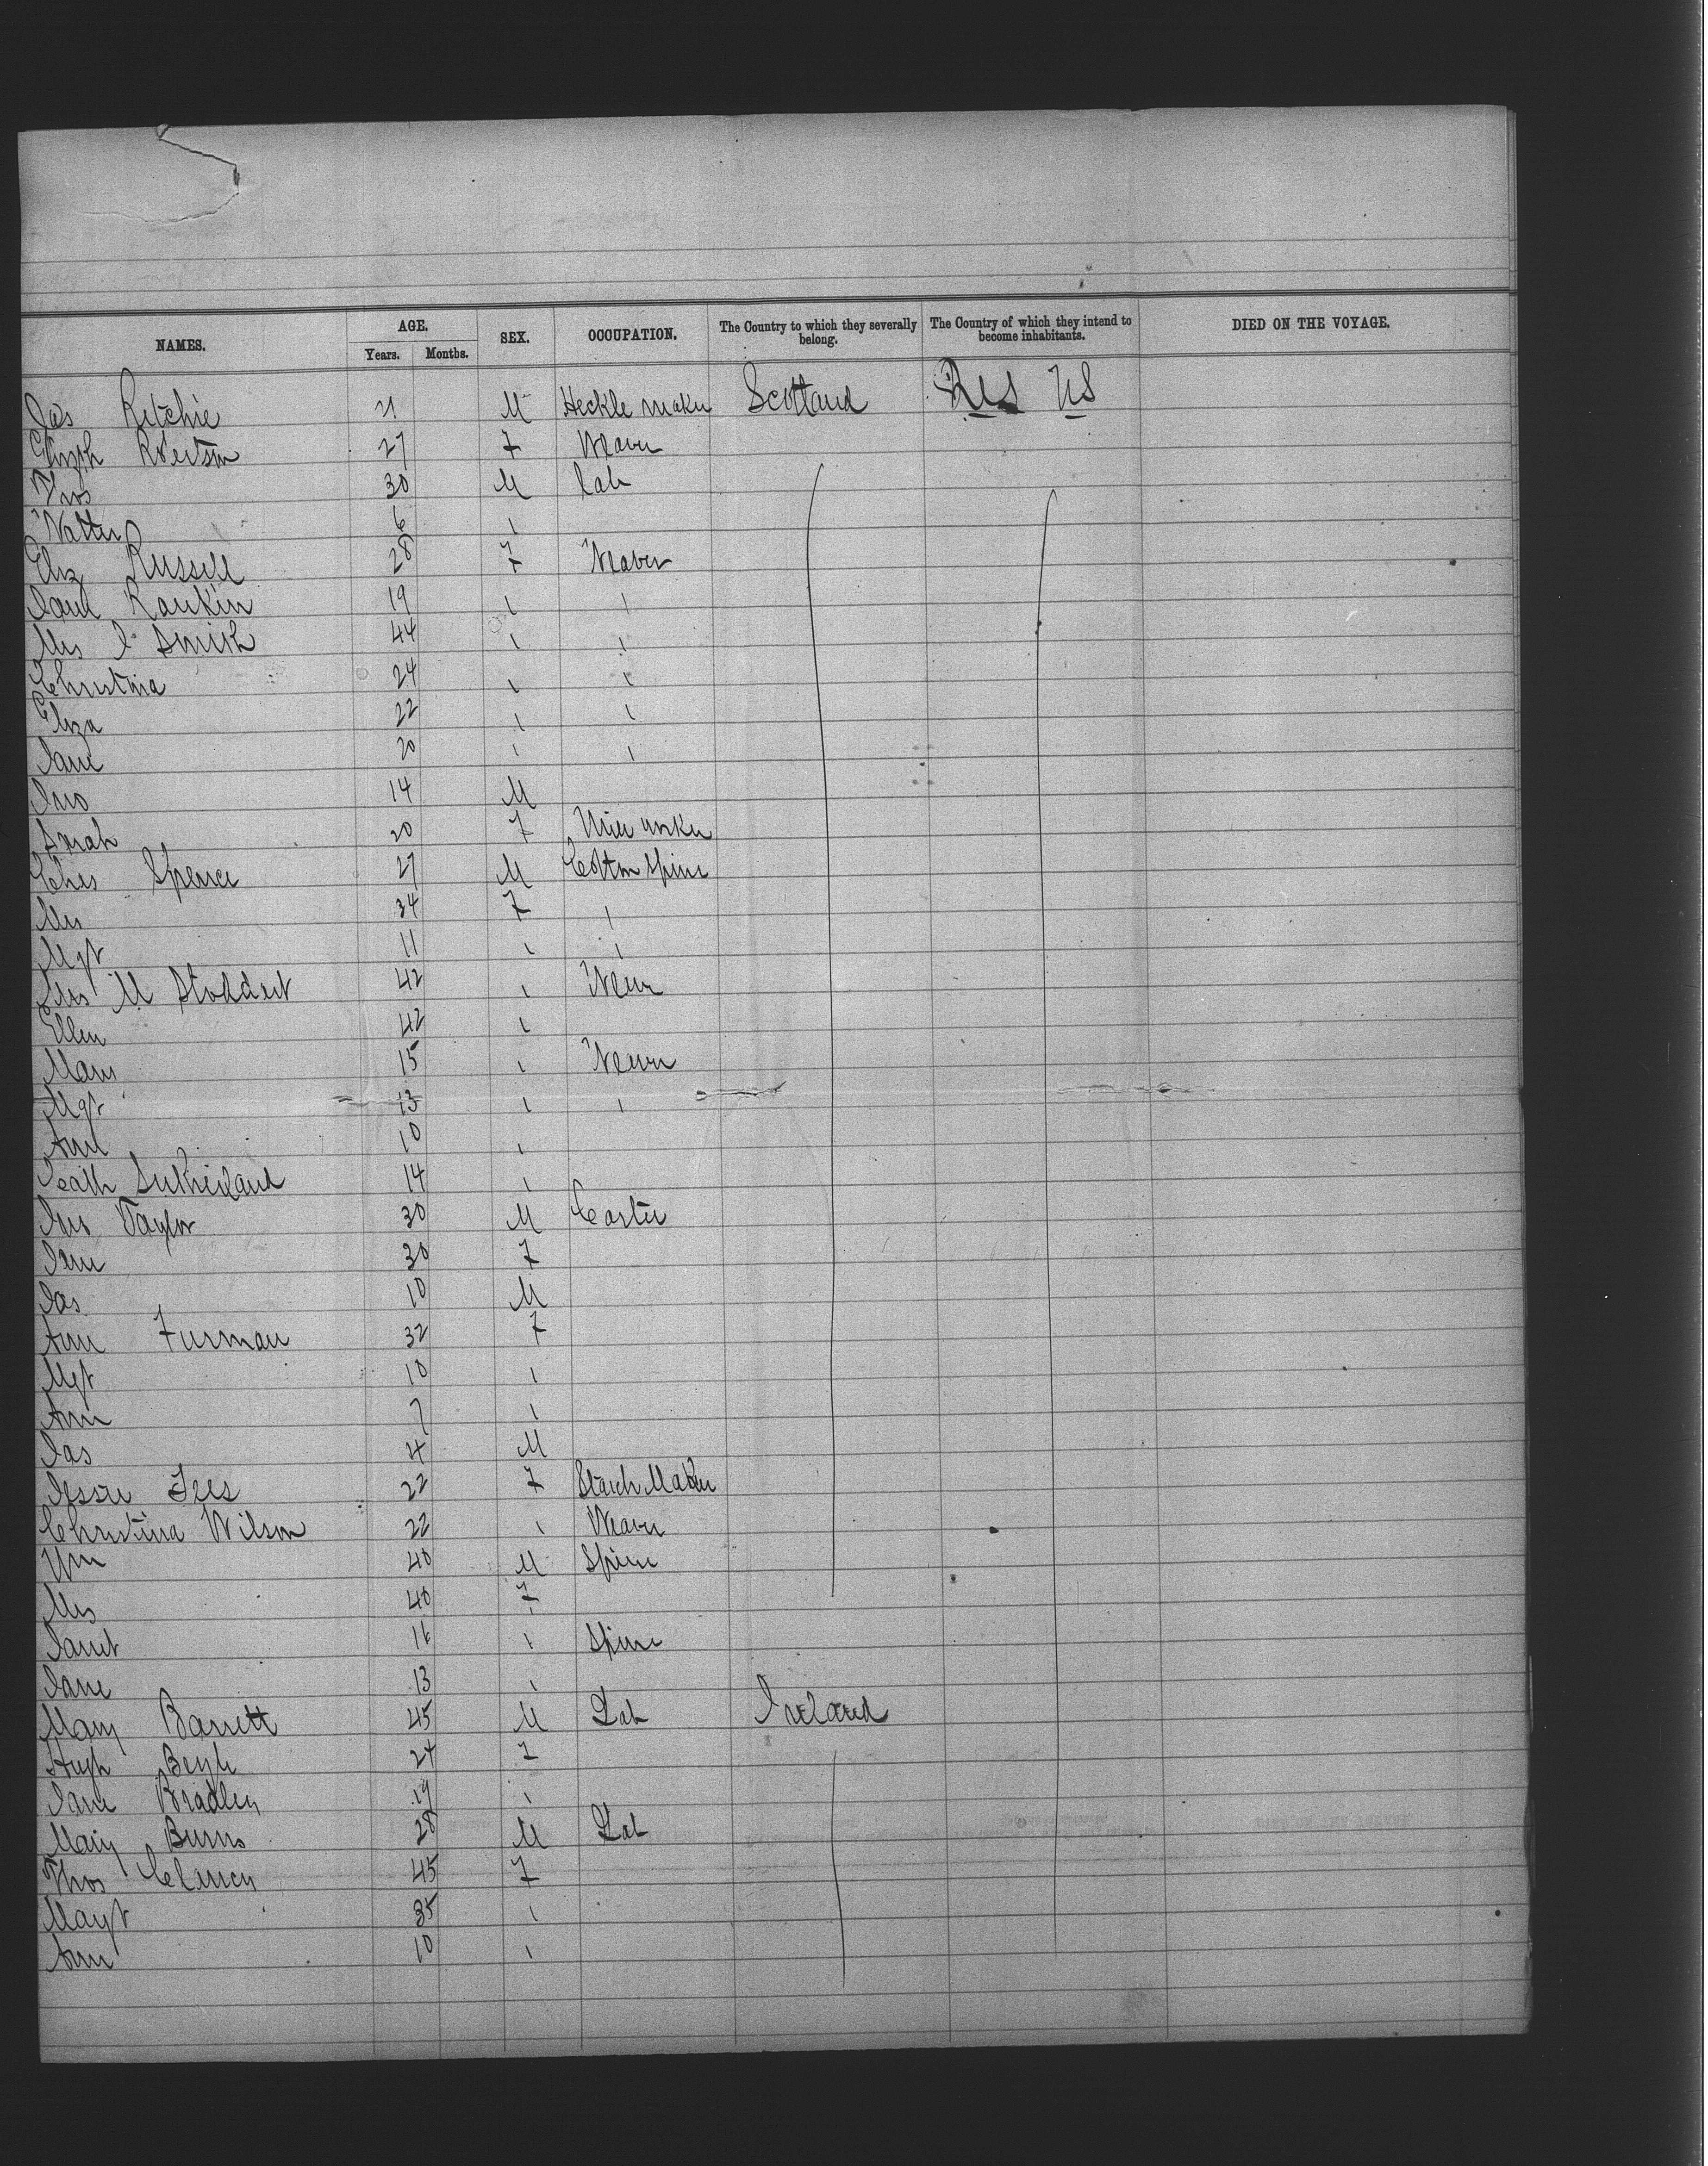 NAMES. AGE. Years. Months. SEX. OCCUPATION. The Country to which they severally belong. The Country of which they intend to become inhabitants. DIED ON THE VOYAGE.
Jas Ritchie 21 M Heckle maker Scotland Res US
Elizth Robertson 27 F Weaver
Thos 30 M Lab
Walter 6 "
Eliz Russell 28 F Weaver
Jane Rankin 19 " "
Mrs J Smith 44 " "
Christina 24 " "
Eliza 22 " "
Jane 20 " "
Jno 14 M
Sarah 20 F Mill worker
Chas Spence 27 M Cotton Spinr
Mrs 34 F "
Mgt 11 " "
Mrs M Stoddert 42 " Weavr
Ellen 42 "
Mary 15 " Weavr
Mgt 13 " "
Ann 10 "
Sutherland 14 "
Jno Taylor 30 M Carter
Jane 30 F
Jas 10 M
Ann Furman 32 F
Mgt 10 "
Ann 7 "
Jas 4 M
Jessie Fees 22 F Starch Maker
Christina Wilson 22 " Weaver
Wm 40 M Spinr
Mrs 40 F
Janet 16 " Spinr
Jane 13 "
Mary Barrett 45 M Lab Ireland
Hugh 24 F
Jane Bradley 19 "
Mary Burns 28 M Lab
Thos Clancy 45 F
Magt 35 "
Ann 10 "